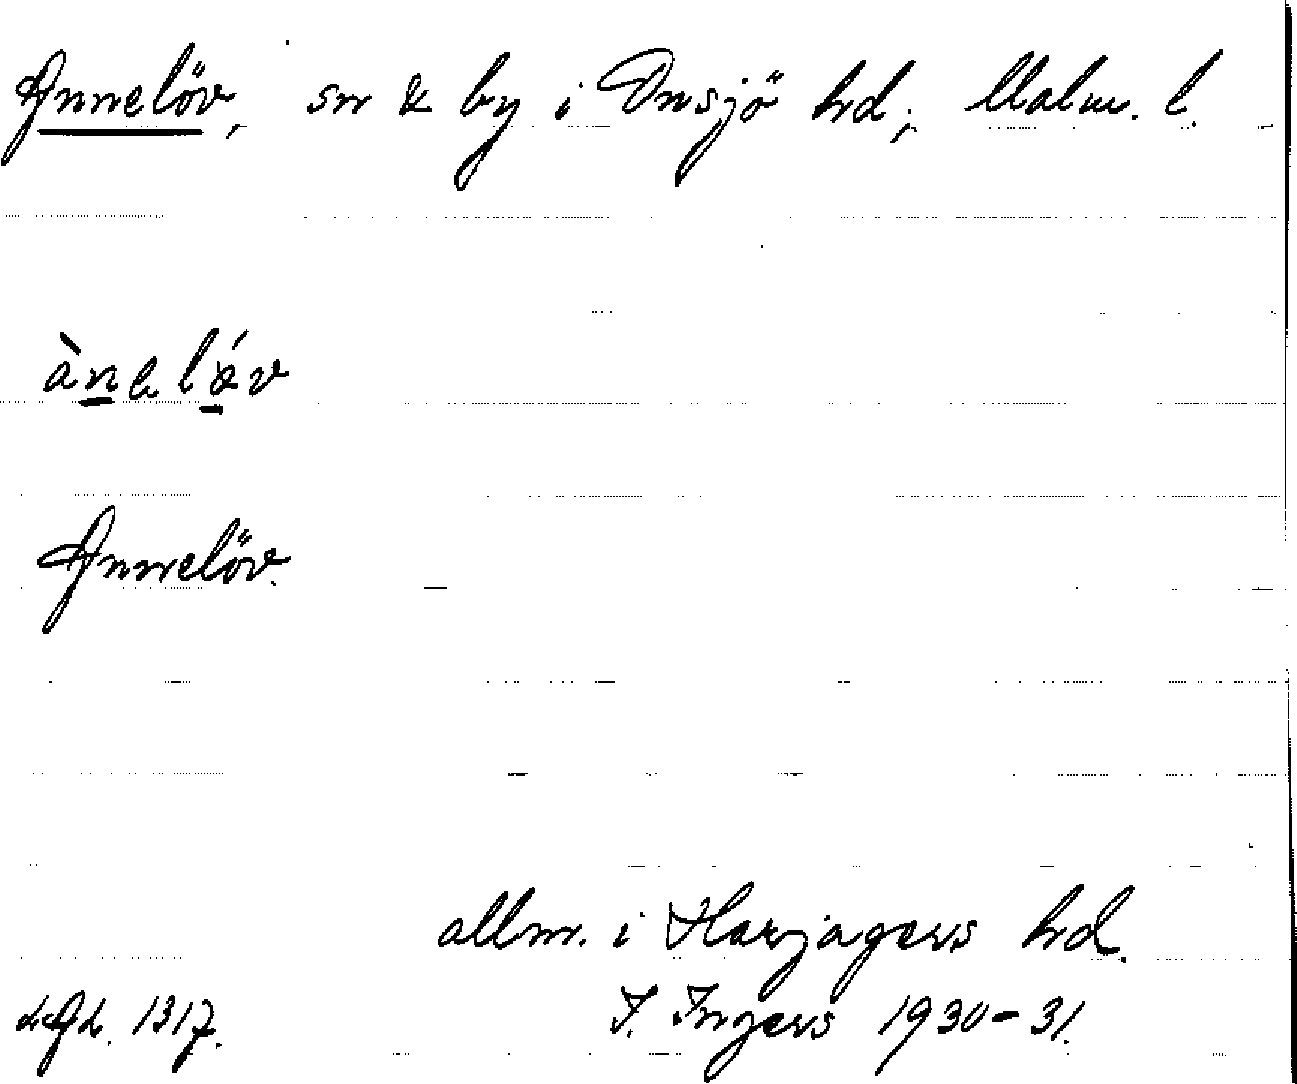 Annelöv, sn & by i Onsjö hd; Malm. l.
ànəlǿv
Annelöv.
allm. i Harjagers hd.
LAL. 1317. I. Ingers 1930-31.